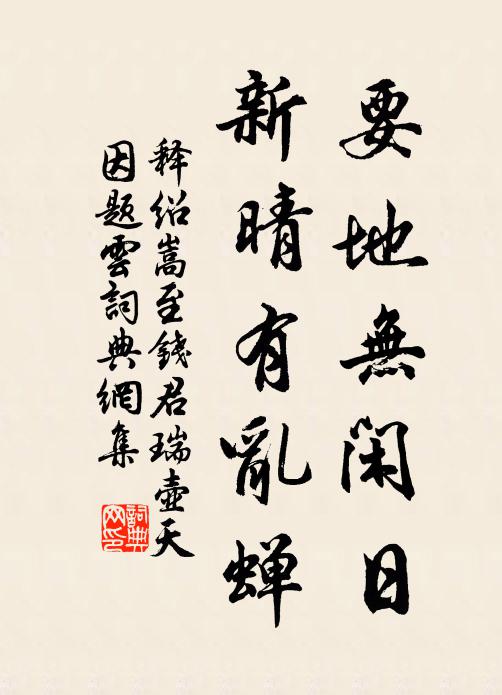 要地無閑日
新晴有亂蝉
释绍嵩至錢君瑞壺天
因题雲詞典網集
詞典
网印